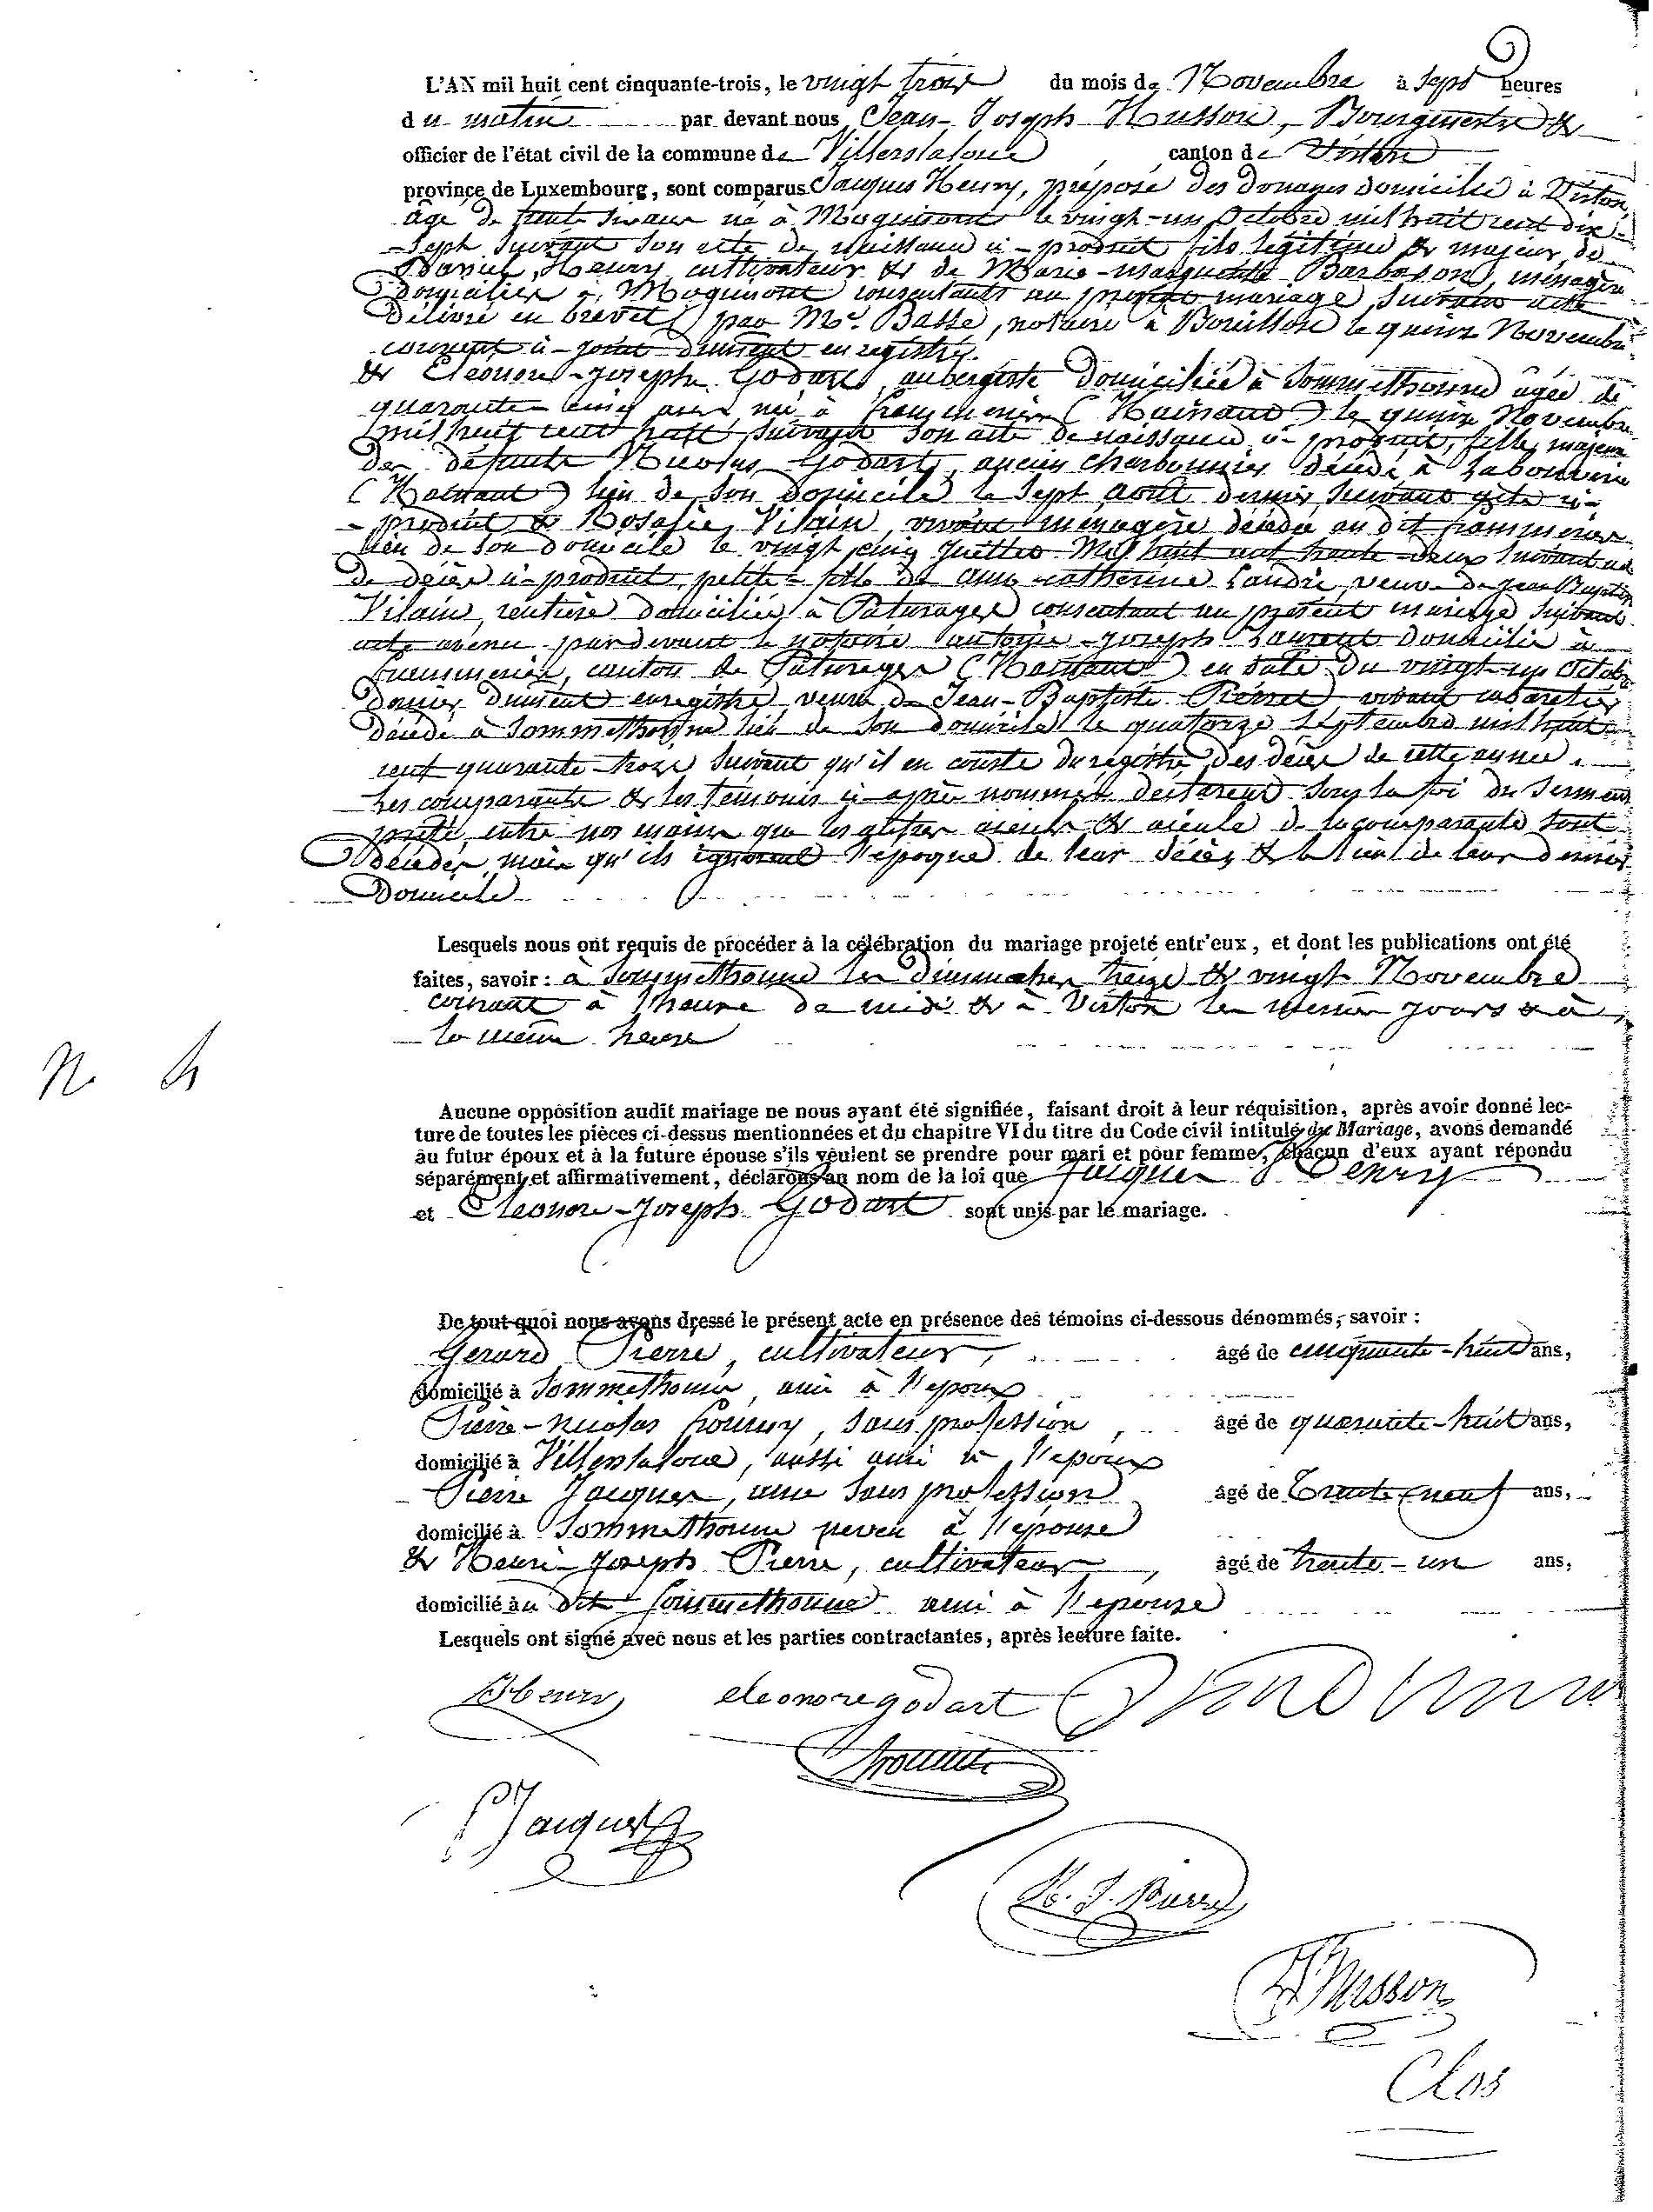 L'AN mil huit cent cinquante-trois, le vingt trois du mois de Novembre à sept heures
du matin par devant nous Jean-Joseph Husson, Bourgmestre &
officier de l'état civil de la commune de Villerslaloue, canton de Virton
province de Luxembourg, sont comparus Jacques Henry, préposé des Douanes domicilié à Virton,
âgé de trente six ans né à Moguimont le vingt-un Octobre mil huit cent dix-
-sept suivant son acte de naissance ci-produit fils légitime & majeur de
Henry cultivateur & de Marie-Marguerite Barboson, ménagère
domiciliés à Moguimont consentants au présent mariage suivant acte
délivré en brevet par Mr. Basse, notaire à Bouillon le quinze Novembre
courant ci-joint dument enregistré.
& Eléonore-Joseph Godart, aubergiste domiciliée à Sommethonne âgée de
quarante cinq ans née à frammeries (Hainaut) le quinze Novembre
mil huit cent huit suivant son acte de naissance ci-produit, fille majeure
des défunts Nicolas Godart, ancien charbonnier décédé à Labouverie
(Hainaut) lieu de son domicile le sept août dernier suivant acte ci-
-produit & Rosalie Vilain, vivant ménagère décédée au dit frammeries
lieu de son domicile le vingt cinq Juillet Mil huit cent trente-deux suivant acte
de décès ci-produit, petite-fille de Anne Catherine Landri, veuve de Jean Baptiste
Vilain, rentière domiciliée à Paturages consentant au présent mariage suivant
acte avenu pardevant le notaire Antoine-Joseph Laurent domicilié à
frammeries, canton de Paturages (Hainaut) en date du vingt-un Octobre
dernier dument enregistré veuve de Jean-Baptiste Pierret vivant cabaretier
décédé à Sommethonne lieu de son domicile le quatorze Septembre mil huit
cent quarante-trois suivant qu'il en conste du registre des décès de cette année.
Les comparants & les témoins ci-après nommés déclarent sous la foi du serment
prêté entre nos mains que les autres aïeuls & aïeule de la comparante sont
décédés, mais qu'ils ignorent l'époque de leur décès & le lieu de leur dernier
Domicile
Lesquels nous ont requis de procéder à la célébration du mariage projeté entr'eux, et dont les publications ont été
faites, savoir: à Sommethonne les dimanches treize & vingt Novembre
courant à l'heure de midi & à Virton les mêmes jours & à
la même heure
N.
Aucune opposition audit mariage ne nous ayant été signifiée, faisant droit à leur réquisition, après avoir donné lec-
ture de toutes les pièces ci-dessus mentionnées et du chapitre VI du titre du Code civil intitulé du Mariage, avons demandé
au futur époux et à la future épouse s'ils veulent se prendre pour mari et pour femme, chacun d'eux ayant répondu
séparément et affirmativement, déclarons au nom de la loi que Jacques Henry
et Eléonore-Joseph Godart sont unis par le mariage.
De tout quoi nous avons dressé le présent acte en présence des témoins ci-dessous dénommés, savoir:
Gerard Pierre, cultivateur, âgé de cinquante-huit ans,
domicilié à Sommethonne, ami à l'époux
Pierre-Nicolas, sans profession, âgé de quarante-huit ans,
domicilié à Villerslaloue, aussi ami à l'époux
Pierre Jacques, sans profession âgé de Trente-neuf ans,
domicilié à Sommethonne neveu à l'épouse
& Henri-Joseph Pierre, cultivateur, âgé de trente-un ans,
domicilié au dit Sommethonne ami à l'épouse
Lesquels ont signé avec nous et les parties contractantes, après lecture faite.
Henry eleonore godart
P Jacques
H. J. Pierre
Husson
Clos